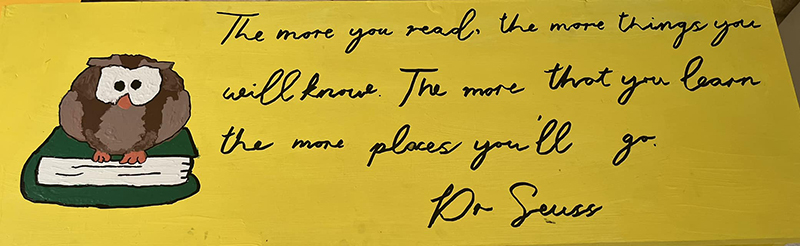 The more you read, the more things you
will know. The more that you learn
the more places you'll go.
Dr Seuss